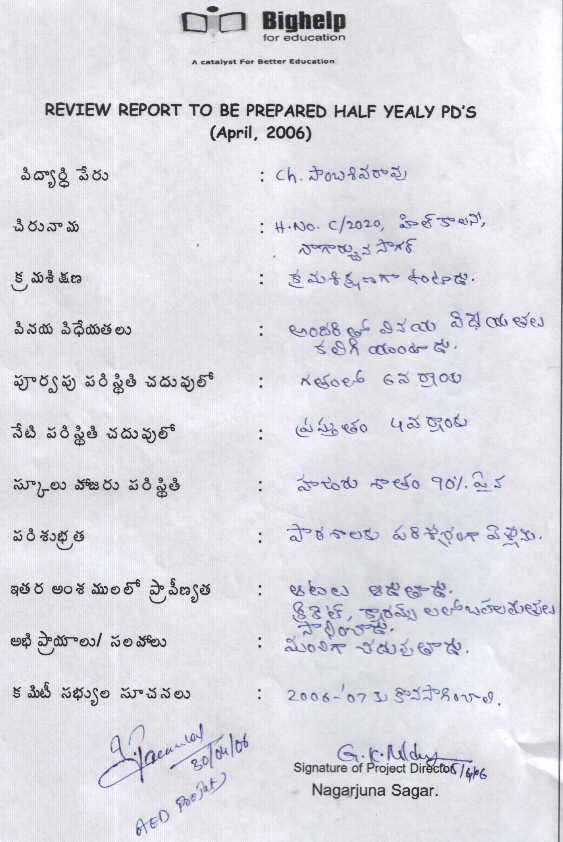 Bighelp
for education
A catalyst For Better Education
REVIEW REPORT TO BE PREPARED HALF YEALY PD'S
(April, 2006)
విద్యార్థి పేరు : Ch. సాంబశివరావు
చిరునామ : H.No. C/2020, హిల్ కాలనీ,
నాగార్జున సాగర్
క్రమశిక్షణ : క్రమశిక్షణగా ఉంటాడు.
వినయ విధేయతలు : అందరితో వినయ విధేయతలు
కలిగి యుంటాడు.
పూర్వపు పరిస్థితి చదువులో : గతంలో 6వ ర్యాంకు
నేటి పరిస్థితి చదువులో : ప్రస్తుతం 4వ ర్యాంకు
స్కూలు హాజరు పరిస్థితి : హాజరు శాతం 90% పైన
పరిశుభ్రత : పాఠశాలకు పరిశుభ్రంగా
ఇతర అంశములలో ప్రావీణ్యత : ఆటలు ఆడుతాడు.
క్రికెట్, క్యారమ్స్ లలో బహుమతులు
సాధించాడు.
అభిప్రాయాలు/ సలహాలు : మంచిగా చదువుతాడు.
కమిటీ సభ్యుల సూచనలు : 2006-'07 కు కొనసాగించాలి.
30/04/06
AED
Signature of Project Director
Nagarjuna Sagar.